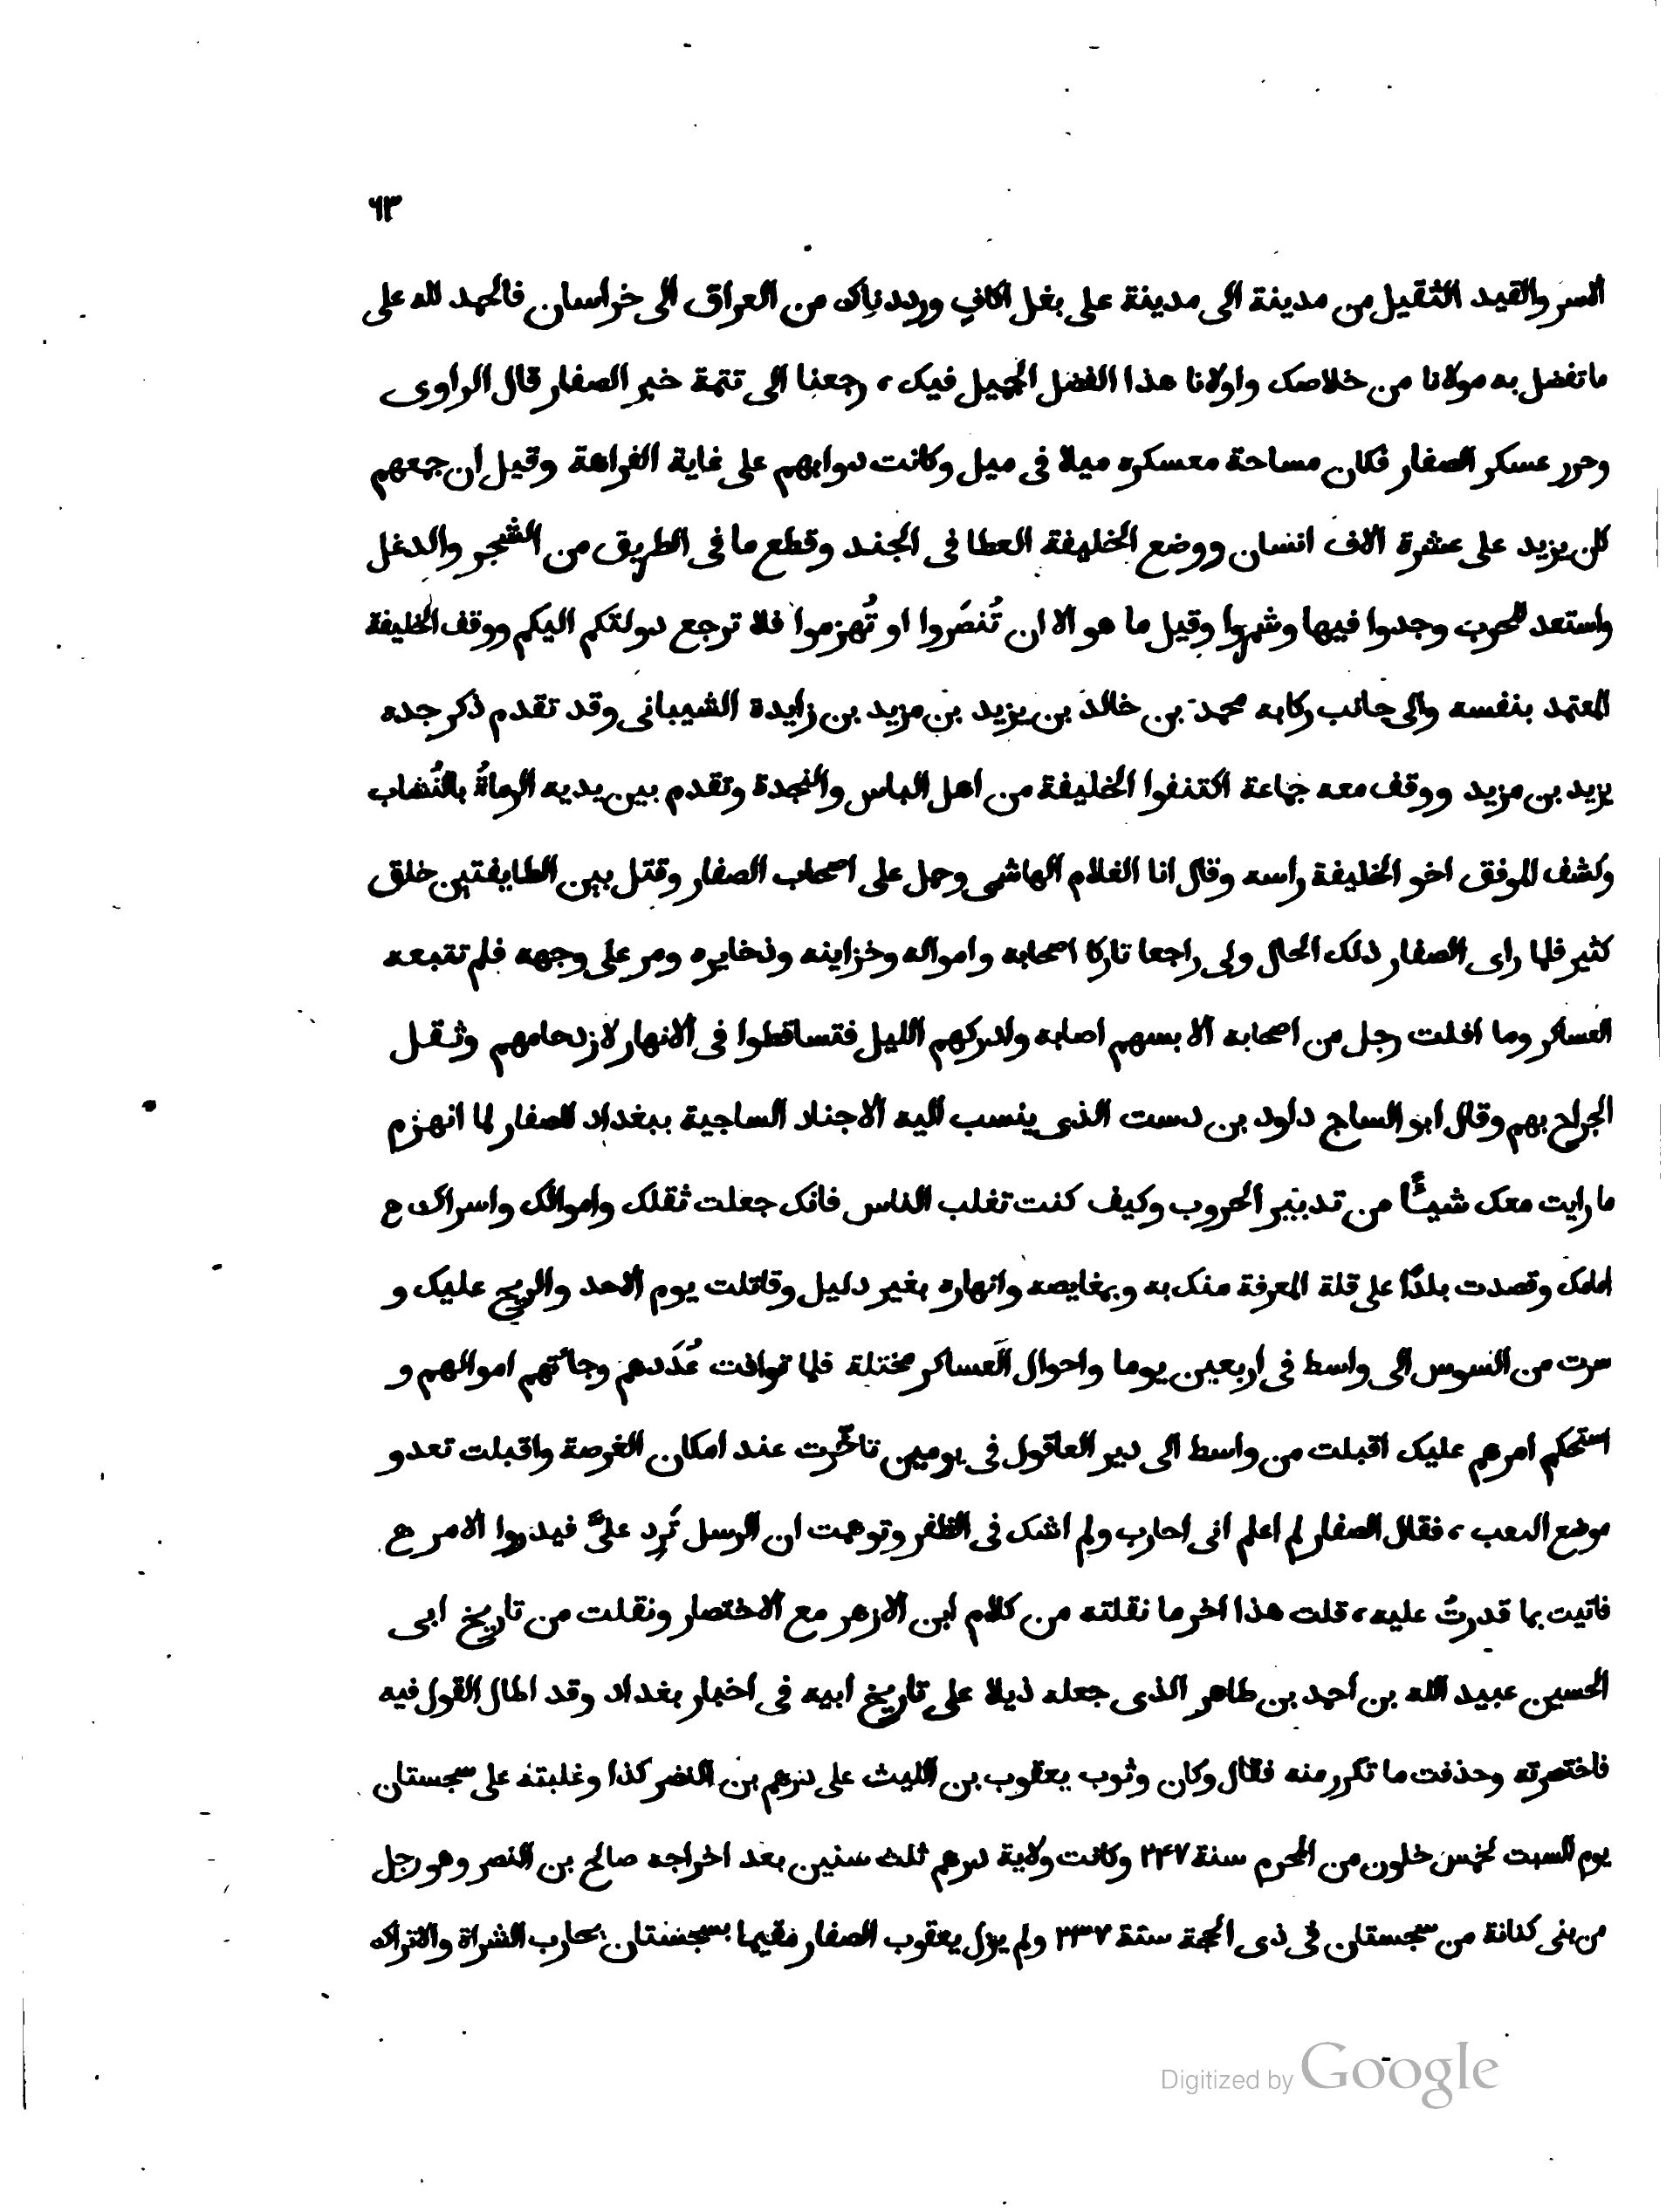 ٦٣
السر والقيد الثقيل من مدينة الى مدينة على بغل اكاف ورددناك من العراق الى خراسان فالحمد لله على
ما تفضل به مولانا من خلاصك واولانا هذا الفضل الجميل فيك، رجعنا الى تتمة خبر الصفار قال الراوى
وحزر عسكر الصفار فكان مساحة معسكره ميلا فى ميل وكانت دوابهم على غاية الفراهة وقيل ان جمعهم
كان يزيد على عشرة الاف انسان ووضع الخليفة العطا فى الجند وقطع ما فى الطريق من الشجر والدغل
واستعد للحرب وجدوا فيها وشمروا وقيل ما هو الا ان تُنصَروا او تُهزموا فلا ترجع دولتكم اليكم ووقف الخليفة
المعتمد بنفسه والى جانب ركابه محمد بن خالد بن يزيد بن مزيد بن زايدة الشيبانى وقد تقدم ذكر جده
يزيد بن مزيد ووقف معه جماعة اكتنفوا الخليفة من اهل الباس والنجدة وتقدم بين يديه الرماةُ بالنُشاب
وكشف الموفق اخو الخليفة راسه وقال انا الغلام الهاشمى وحمل على اصحاب الصفار وقتل بين الطايفتين خلق
كثير فلما راى الصفار ذلك الحال ولى راجعا تاركا اصحابه وامواله وخزاينه وذخايره ومر على وجهه فلم تتبعه
العساكر وما افلت رجل من اصحابه الا بسهم اصابه وادركهم الليل فتساقطوا فى الانهار لازدحامهم وثقل
الجراح بهم وقال ابو الساج داود بن دست الذى ينسب اليه الاجناد الساجية ببغداد للصفار لما انهزم
ما رايت معك شيئًا من تدبير الحروب وكيف كنت تغلب الناس فانك جعلت ثقلك واموالك واسراك ع
امامك وقصدت بلدًا على قلة المعرفة منك به وبمغايصه وانهاره بغير دليل وقاتلت يوم الاحد والريح عليك و
سرت من السوس الى واسط فى اربعين يوما واحوال العساكر مختلة فلما توافت عُدَدهم وجائتهم اموالهم و
استحكم امرهم عليك اقبلت من واسط الى دير العاقول فى يومين تاخّرت عند امكان الفرصة واقبلت تعدو
موضع التعب، فقال الصفار لم اعلم انى احارب ولم اشك فى الظفر وتوهمت ان الرسل تُرِد علىَّ فيدبروا الامر ع
فاتيت بما قدرتُ عليه، قلت هذا اخر ما نقلته من كلام ابن الازهر مع الاختصار ونقلت من تاريخ ابى
الحسين عبيد الله بن احمد بن طاهر الذى جعله ذيلا على تاريخ ابيه فى اخبار بغداد وقد اطال القول فيه
فاختصرته وحذفت ما تكرر منه فقال وكان وثوب يعقوب بن الليث على درهم بن النضر كذا وغلبته على سجستان
يوم السبت لخمس خلون من المحرم سنة ٢٤٧ وكانت ولاية درهم ثلث سنين بعد اخراجه صالح بن النصر وهو رجل
من بنى كنانة من سجستان فى ذى الحجة سنة ٢٣٧ ولم يزل يعقوب الصفار مقيما بسجستان يحارب الشراة والاتراك
Digitized by Google